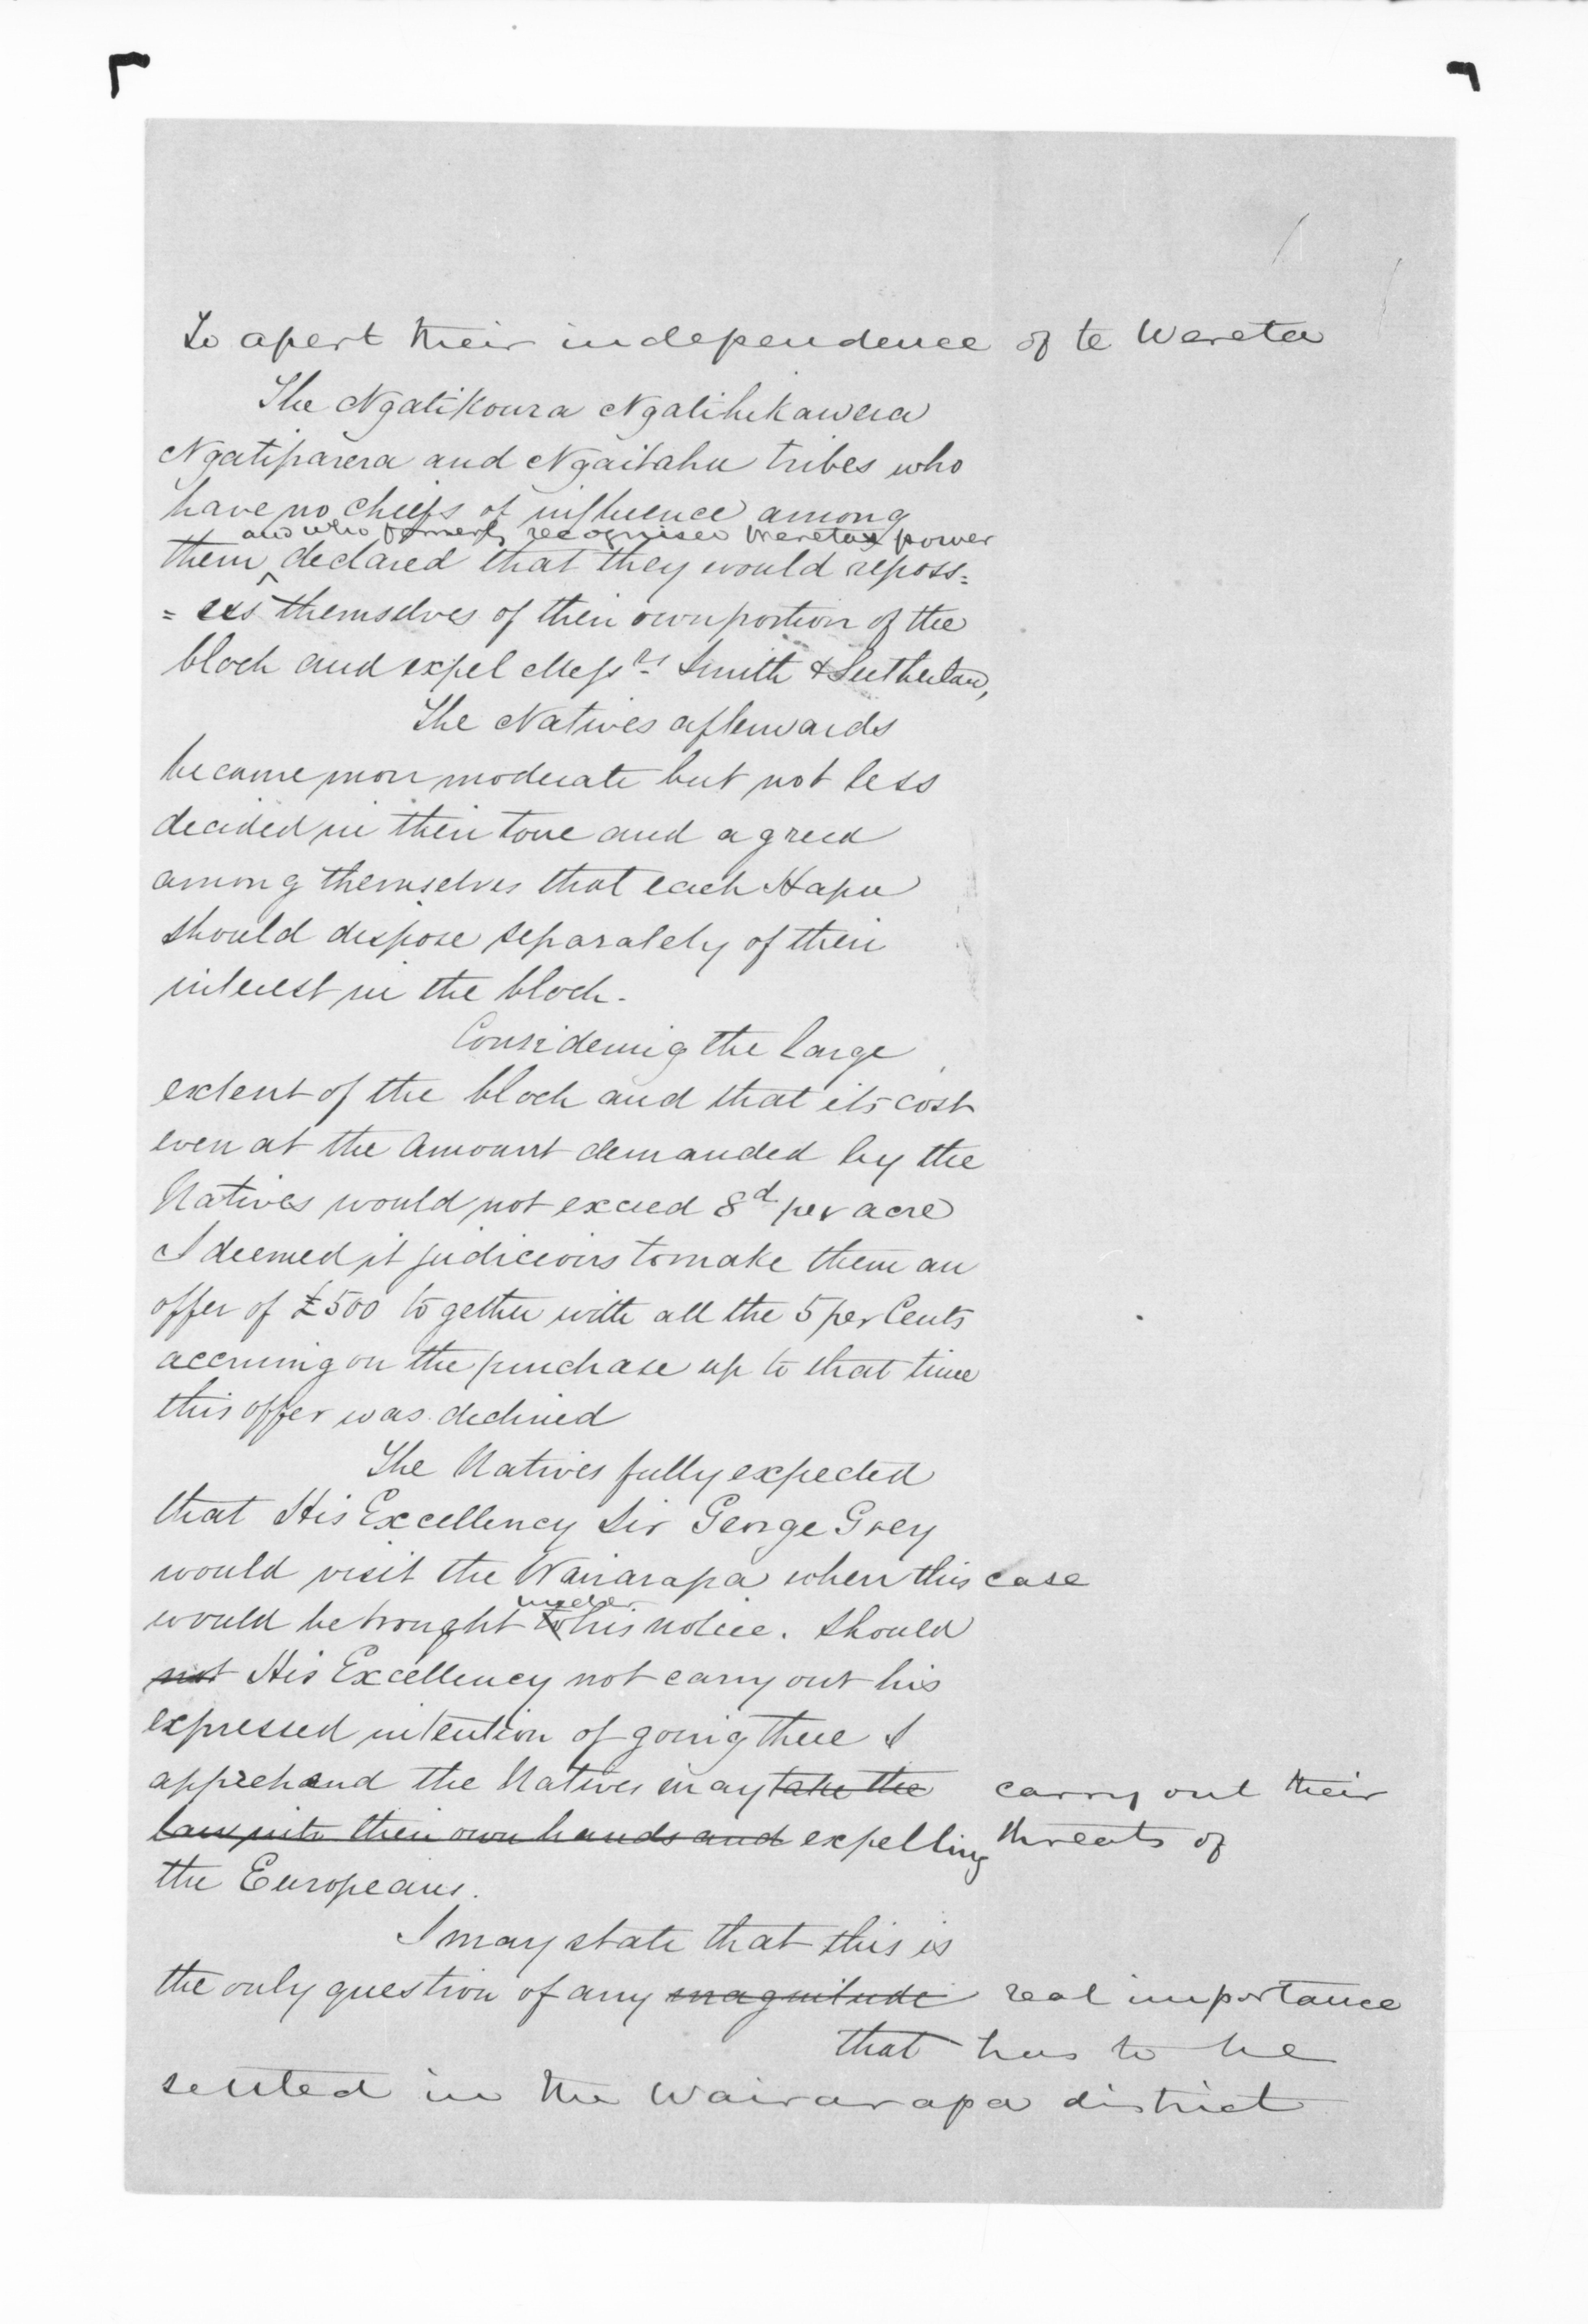 to assert their independence of te Wereta
The Ngatikoura Ngatihikawera
Ngatiparera and Ngaitahu tribes who
have no chiefs of influence among
and who formerly recognised Weretas power
them declared that they would reposs=
=ess themselves of their own portion of the
block and expel Messrs Smith & Sutherland,
The Natives afterwards
became more moderate but not less
decided in their tone and agreed
among themselves that each Hapu
should dispose separately of their
interest in the block.
Considering the large
extent of the block and that its cost
even at the amount demanded by the
Natives would not exceed 8d per acre
I deemed it judicious to make them an
offer of £500 together with all the 5 per Cents
accruing on the purchase up to that time
this offer was declined
The Natives fully expected
that His Excellency Sir George Grey
would visit the Wairarapa when this case
under
would be brought to his notice. Should
not His Excellency not carry out his
expressed intention of going there I
apprehend the Natives may take the carry out their
law into their own hands and expelling threats of
the Europeans.
I may state that this is
the only question of any magnitude real importance
that has to be
settled in the Wairarapa district